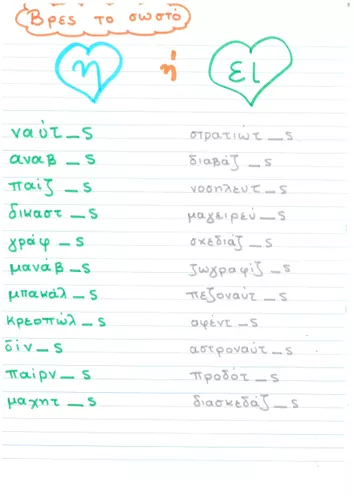 Βρες το σωστό
η ή ει
ναύτ __ ς
αναβ __ ς
παίζ __ ς
δικαστ __ ς
γράφ __ ς
μανάβ __ ς
μπακάλ __ ς
κρεοπώλ __ ς
δίν __ ς
παίρν __ ς
μαχητ __ ς
στρατιώτ __ ς
διαβάζ __ ς
νοσηλευτ __ ς
μαγειρεύ __ ς
σχεδιάζ __ ς
ζωγραφίζ __ ς
πεζοναύτ __ ς
αφέντ __ ς
αστροναύτ __ ς
προδότ __ ς
διασκεδάζ __ ς